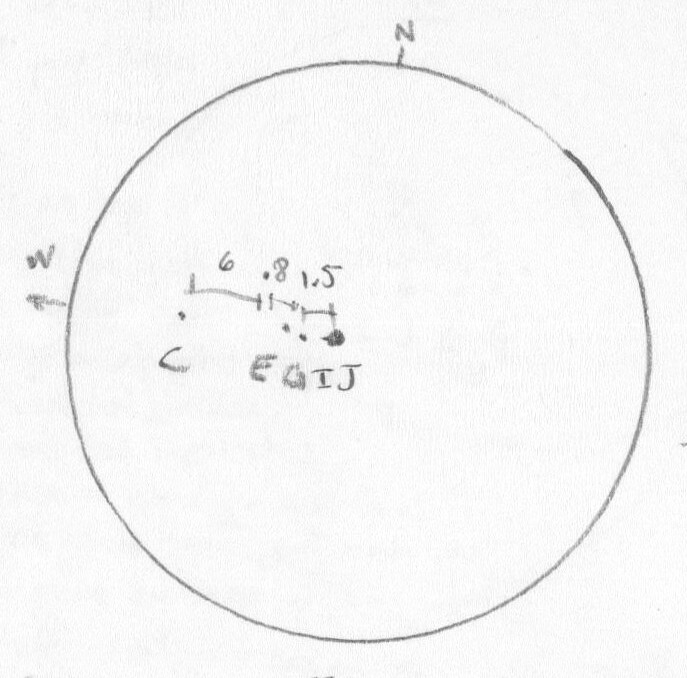 N
W
6 .8 1.5
C E G I J